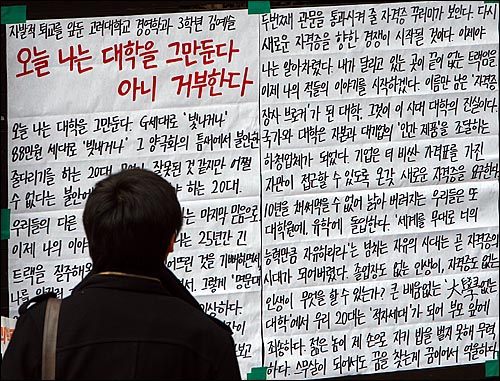 자발적 퇴교를 앞둔 고려대학교 경영학과 3학년 김예슬
오늘 나는 대학을 그만둔다
아니 거부한다
오늘 나는 대학을 그만둔다. G세대로 '빛나거나'
88만원 세대로 '빚내거나' 그 양극화의 틈새에서 불안한
줄타기를 하는 20대. 잘못된 것 같지만 어쩔
수 없다는 불안에 하는 20대.
우리들의 다른 는 마지막 믿음으로
이제 나의 이야 는 25년간 긴
트랙을 질주해왔 된 것을 기뻐하면서
나를 그렇게 '명문대
두번째 관문을 통과시켜 줄 자격증 꾸러미가 보인다. 다시
새로운 자격증을 향한 경쟁이 시작될 것이다. 이제야
나는 알아차렸다. 내가 달리고 있는 곳이 끝이 없는 트랙임을
이제 나의 적들의 이야기를 시작하겠다. 이름만 남은 '자격증
장사 브로커'가 된 대학. 그것이 이 시대 대학의 진실이다.
국가와 대학은 자본과 대기업의 '인간 제품'을 조달하는
하청업체가 되었다. 기업은 더 비싼 가격표를 가진
자만이 접근할 수 있도록 온갖 새로운 자격증을 요구한다
10년을 채 써먹을 수 없어 낡아 버려지는 우리들은 또
대학원에, 유학에 돌입한다. '세계를 무대로 너의
능력만큼 자유하리라'는 넘치는 자유의 시대는 곧 자격증의
시대가 되어버렸다. 졸업장도 없는 인생이, 자격증도 없는
인생이 무엇을 할 수 있는가? 큰 배움 없는 '大學 없는
대학'에서 우리 20대는 '적자세대'가 되어 부모 앞에
죄송하다. 젊은 놈이 제 손으로 자기 밥을 벌지 못해 무력
하다. 스무살이 되어서도 꿈을 찾는게 꿈이어서 억울하다.